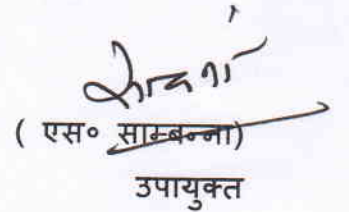 ( एस० साम्बन्ना)
उपायुक्त